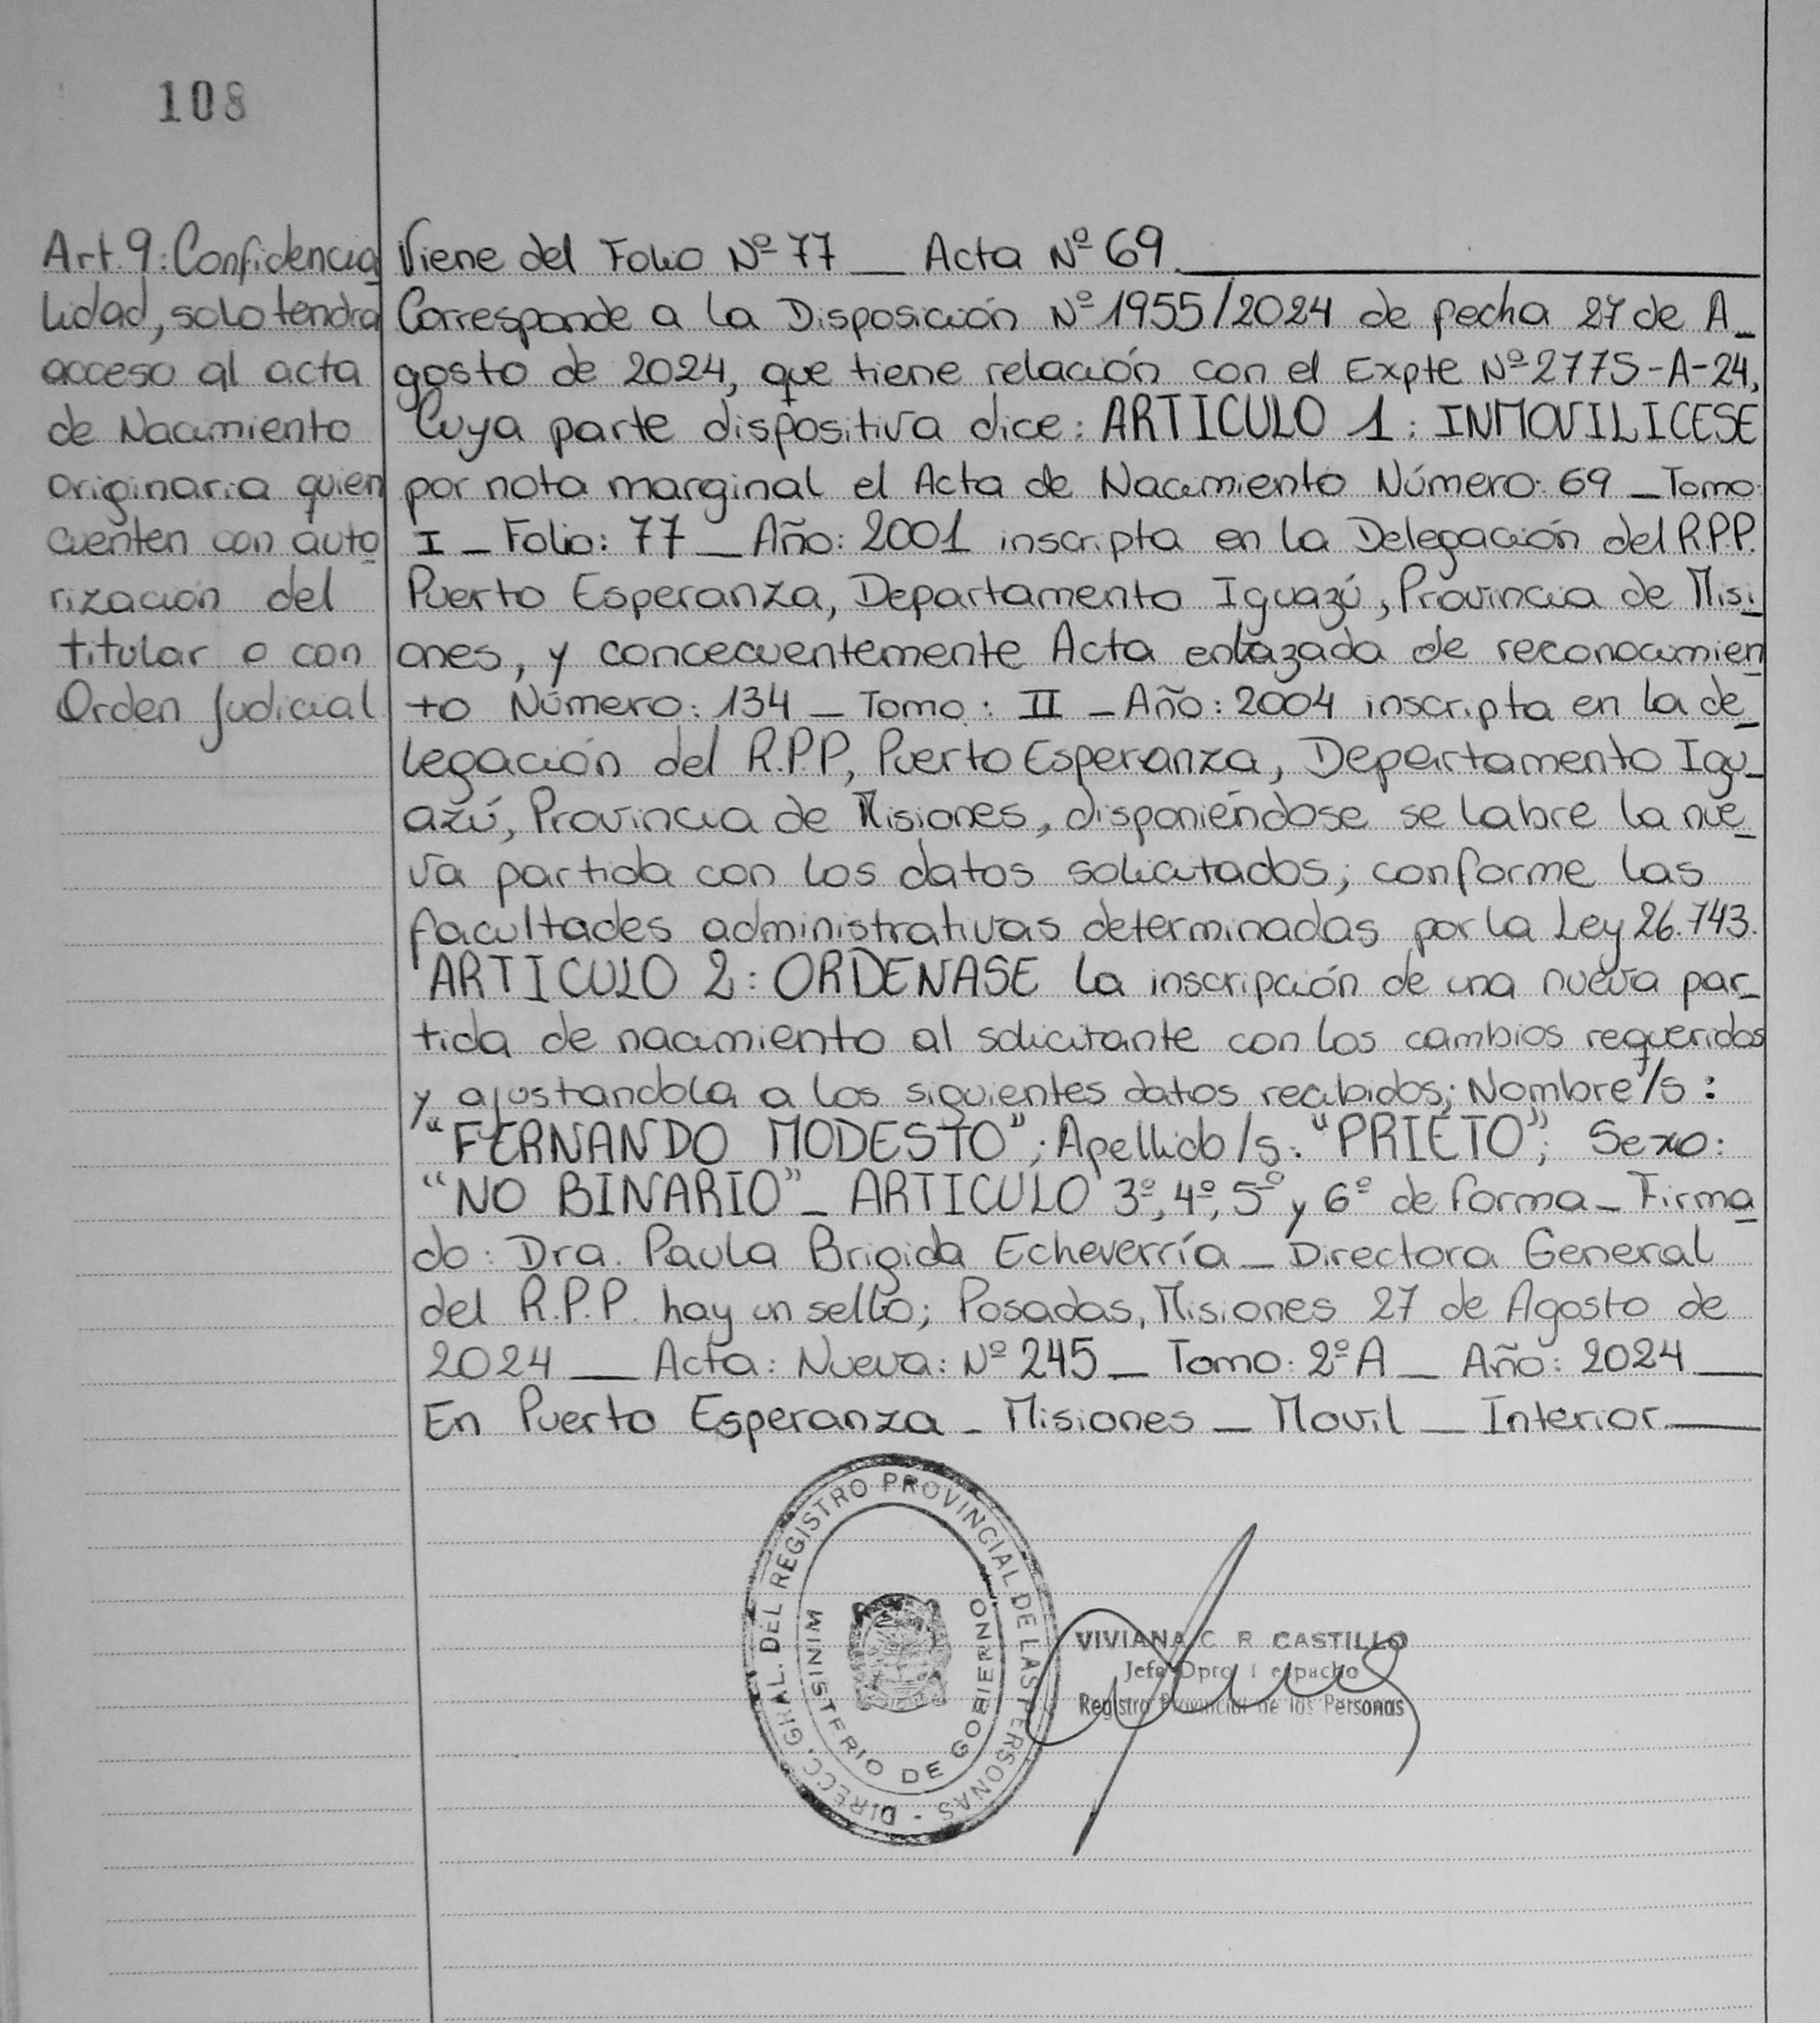 108
Art. 9: Confidencia_
lidad, solo tendra
acceso al acta
de Nacimiento
originaria quien
cuenten con auto_
rización del
titular o con
Orden Judicial
Viene del Folio Nº 77 _ Acta Nº 69.
Corresponde a la Disposición Nº 1955/2024 de fecha 27 de A_
gosto de 2024, que tiene relación con el Expte Nº 2775-A-24,
Cuya parte dispositiva dice: ARTICULO 1: INMOVILICESE
por nota marginal el Acta de Nacimiento Número: 69 _ Tomo:
I _ Folio: 77 _ Año: 2001 inscripta en la Delegación del R.P.P.
Puerto Esperanza, Departamento Iguazú, Provincia de Misi_
ones, y concecuentemente Acta enlazada de reconocimien
to Número: 134 _ Tomo: II _ Año: 2004 inscripta en la de_
legación del R.P.P, Puerto Esperanza, Departamento Igu_
azú, Provincia de Misiones, disponiéndose se labre la nue_
va partida con los datos solicitados; conforme las
facultades administrativas determinadas por la Ley 26.743.
ARTICULO 2: ORDENASE la inscripción de una nueva par_
tida de nacimiento al solicitante con los cambios requeridos
y ajustandola a los siguientes datos recibidos; Nombre/s:
"FERNANDO MODESTO"; Apellido/s: "PRIETO"; Sexo:
"NO BINARIO" _ ARTICULO 3º, 4º, 5º y 6º de forma _ Firma_
do: Dra. Paula Brigida Echeverría _ Directora General
del R.P.P. hay un sello; Posadas, Misiones 27 de Agosto de
2024 _ Acta: Nueva: Nº 245 _ Tomo: 2º A _ Año: 2024 _
En Puerto Esperanza _ Misiones _ Movil _ Interior _
DIRECC. GRAL. DEL REGISTRO PROVINCIAL DE LAS PERSONAS -
MINISTERIO DE GOBIERNO
VIVIANA C R CASTILLO
Jefe Dpto
Registro Provincial de los Personas